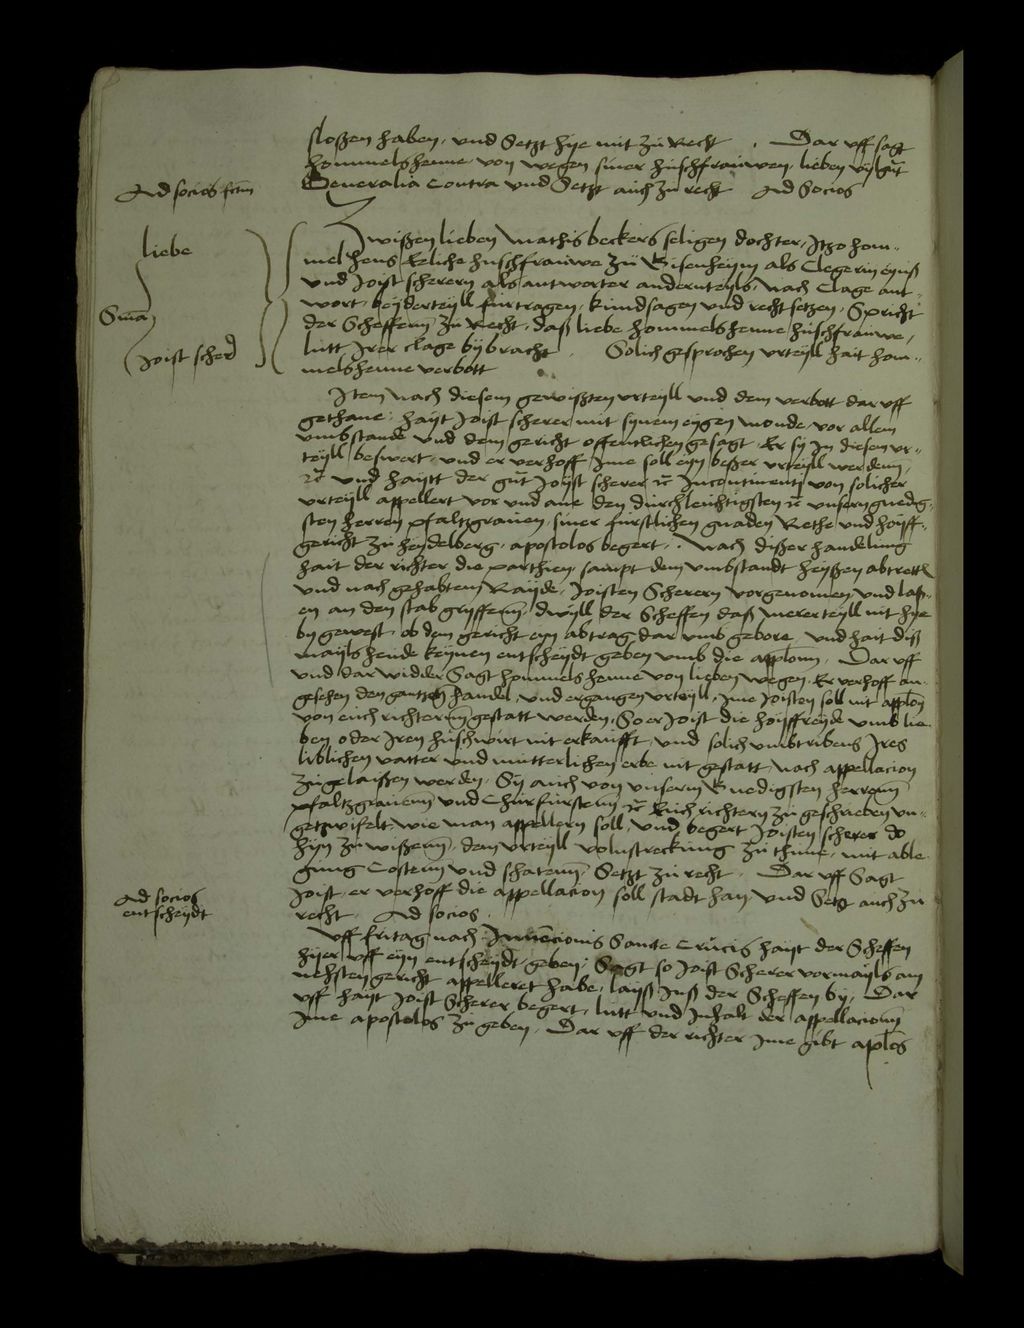 sloßen haben, und Setzt hye mit zu Recht. Dar uff sagt
hommelshenne von wegen siner hußfrauwen lieben
Ad socios sctm
Generalia Contra und Setzt auch zu recht Ad Socios
liebe
Swischen lieben Mathis beckers seligen dochter, Itzo hom-
mel hens Eeliche hußfrauwe zu Bisenheym als Clegerin eynß
und Joist scherern als antworter andernteyls, Nach Clage ant-
Snia
wort, beyderteyll furtragen, kundsagen und recht setzen, Spricht
der Scheffenn zu Recht, daß liebe hommelshenne hußfrauwe,
Joist scherer
lutt Irer clage bybracht. Solich gesprochen urteyll hait hom-
melshenne verbott
Item Nach diesem gewißten urteyll und dem verbott dar uff
gethane, hayt Joist scherer mit synem eygen monde, vor allem
umbstande und dem gericht offentlichen gesagt, Er sy In diesen ur-
teyll beswert, und er verhoff Ime soll eyn beßer urteyll werdenn,
und haytt der gut Joist scherer Incontinenti von solicher
urteyll appellert vor und ane den durchleuchtigsten unsern gnedig-
sten herren pfaltzgrauen, siner furstlichen gnaden Rethe und hoyff-
gericht zu heydelberg, apostolos begert. Nach dißer handelung
hait der richter die parthien, sampt dem umbstandt heyßen abtretten
und nach gehabtem Rayde, Joisten Scherern vorgenomen und laß-
en an den stab gryffenn, dwyll der Scheffen daß mererteyll nit hye
by gewest, ob dem gericht eyn abtrag dar umb gebore, und hait diß
mayls heude keynen entscheydt geben umb die applonn. Dar uff
und dar widder Sagt hommelshenne von lieben wegen, Er verhoff an-
gesehen den gantzen handel, und ergangen urteyll, Ime Joisten soll nit applon
von euch richternn gestatt werden, So er Joist die hoyffreyde umb lie-
ben oder Iren hußwirt nit erkaufft, und solich umbtribens Ires
liblichen vatter und mutterlichen erbe nit gestatt nach appellacion
zugelaißen werden, Sy auch von unsern Gnedigsten herrenn
pfaltzgrauenn und Churfursten Euch richtern zu geschrieben un-
getzwifelt, wie man appellern soll, und begert Joisten scherer do
hyn zu wißenn, dem urteyll volnstreckung zu thune, mit able-
gung Costenn und schatenn, Setzt zu recht. Dar uff Sagt
Ad socios
entscheydt
Joist, er verhoff die appellacion soll stadt han, und Setzt auch zu
recht. Ad socios.
Uff fritag nach Invencionis Sancte Crucis hayt der Scheffen
hyer uff eyn entscheydt geben, Sagt so Joist Scherer vormayls am
nehsten gericht appelleret habe, layß Inß der Scheffen by, Dar
uff hayt Joist Scherer begert, lutt und Inhalt der appellacionn
Ime apostolos zu geben, Dar uff der richter Ime gibt aplos